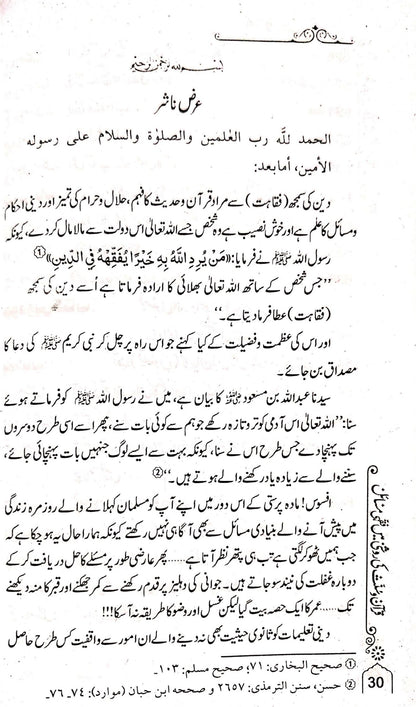 بسم اللہ الرحمن الرحیم
عرض ناشر
الحمد للّٰه رب العٰلمين والصلوٰة والسلام على رسوله
الأمين، أما بعد:
دین کی سمجھ (فقاہت) سے مراد قرآن و حدیث کا فہم، حلال و حرام کی تمیز اور دینی احکام
و مسائل کا علم ہے اور خوش نصیب ہے وہ شخص جسے اللہ تعالیٰ اس دولت سے مالا مال کر دے، کیونکہ
رسول اللہ ﷺ نے فرمایا: «مَنْ يُرِدِ اللَّهُ بِهِ خَيْرًا يُفَقِّهْهُ فِي الدِّينِ» ①
”جس شخص کے ساتھ اللہ تعالیٰ بھلائی کا ارادہ فرماتا ہے اُسے دین کی سمجھ
(فقاہت) عطا فرما دیتا ہے۔“
اور اس کی عظمت و فضیلت کے کیا کہنے جو اس راہ پر چل کر نبی کریم ﷺ کی دعا کا
مصداق بن جائے۔
سیدنا عبداللہ بن مسعود ﷺ کا بیان ہے، میں نے رسول اللہ ﷺ کو فرماتے ہوئے
سنا: ”اللہ تعالیٰ اس آدمی کو تر و تازہ رکھے جو ہم سے کوئی بات سنے، پھر اسے اسی طرح دوسروں
تک پہنچا دے جس طرح اس نے سنا، کیونکہ بہت سے ایسے لوگ جنہیں بات پہنچائی جائے،
سننے والے سے زیادہ یاد رکھنے والے ہوتے ہیں۔“ ②
افسوس! مادہ پرستی کے اس دور میں اپنے آپ کو مسلمان کہلانے والے روز مرہ زندگی
میں پیش آنے والے بنیادی مسائل سے بھی آگاہی نہیں رکھتے کیونکہ ہمارا حال یہ ہو چکا ہے کہ
جب ہمیں ٹھوکر لگتی ہے تب ہی پتھر نظر آتا ہے...... پھر عارضی طور پر مسئلے کا حل دریافت کر کے
دوبارہ غفلت کی نیند سو جاتے ہیں۔ جوانی کی دہلیز پر قدم رکھنے سے کمر جھکنے اور قبر کا منہ دیکھنے
تک...... عمر کا ایک حصہ بیت گیا لیکن غسل اور وضو کا طریقہ نہ آ سکا!!!
دینی تعلیمات کو ثانوی حیثیت بھی نہ دینے والے ان امور سے واقفیت کس طرح حاصل
① صحیح البخاری: ٧١؛ صحیح مسلم: ١٠٣۔
② حسن، سنن الترمذی: ٢٦٥٧ و صححه ابن حبان (موارد): ٧٤۔٧٦۔
قرآن و سنت کی روشنی میں فقہی مسائل
30